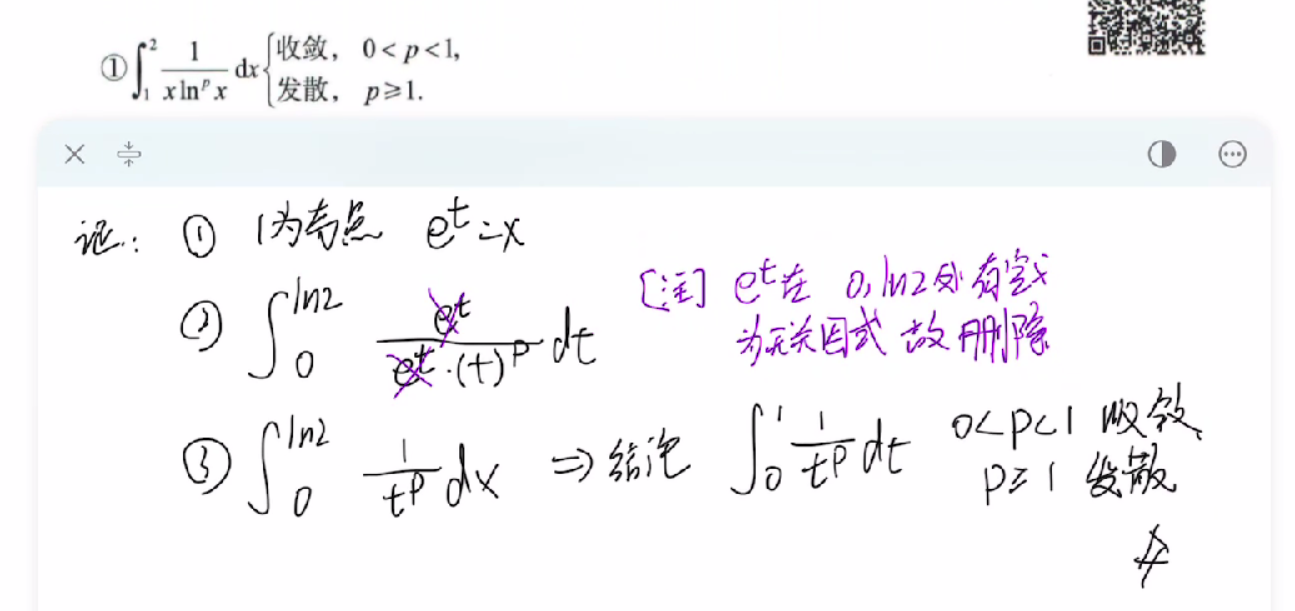 ① ∫₁² 1/(x lnᵖ x) dx { 收敛， 0<p<1,
发散， p≥1.
证: ① 1为奇点 eᵗ=x
② ∫₀^ln2 eᵗ/(eᵗ·(t)ᵖ) dt
[注] eᵗ在 0,ln2处有定义
为无关因式 故删除
③ ∫₀^ln2 1/tᵖ dx ⇒ 结论 ∫₀¹ 1/tᵖ dt 0<p<1 收敛、
p≥1 发散
#